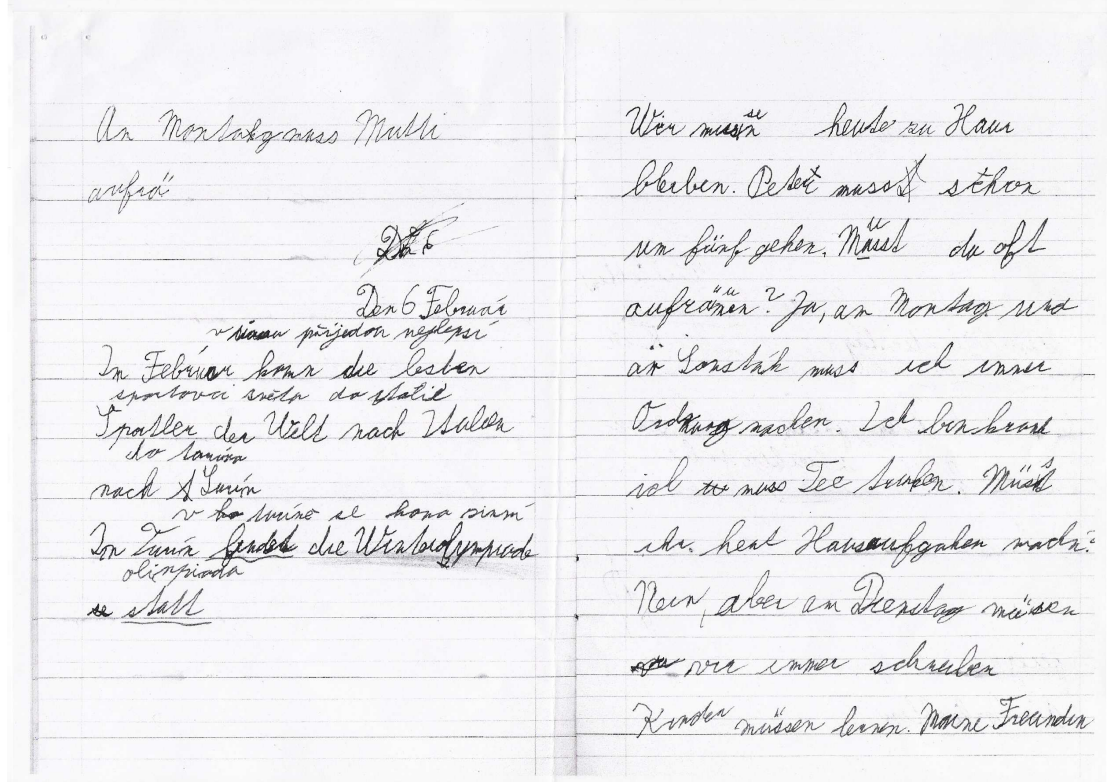 An Montahg muss Mutti
aufrä
Den 6 Februar
v přijedou nejlepsí
Im Februar komn die besten
sportovci sveta do italie
Sportler der Welt nach Italen
do turina
nach Turín
v turíno se kona zimní
In Turín findet die Winterolympiade
olinpiada
statt
Wir mussen heute zu Haus
bleiben. Peter muss schon
um fünf gehen. Müsst du oft
aufräumen? Ja, am Montag und
än Sonstäk muss ich immer
Ordnung machen. Ich bin krank
ich muss Tee trinken. Müsst
ihr heut Hausaufgaben machn?
Nein, aber am Dienstag müsen
wir immer schreiben
Kinder müssen lernen. Meine Freundin